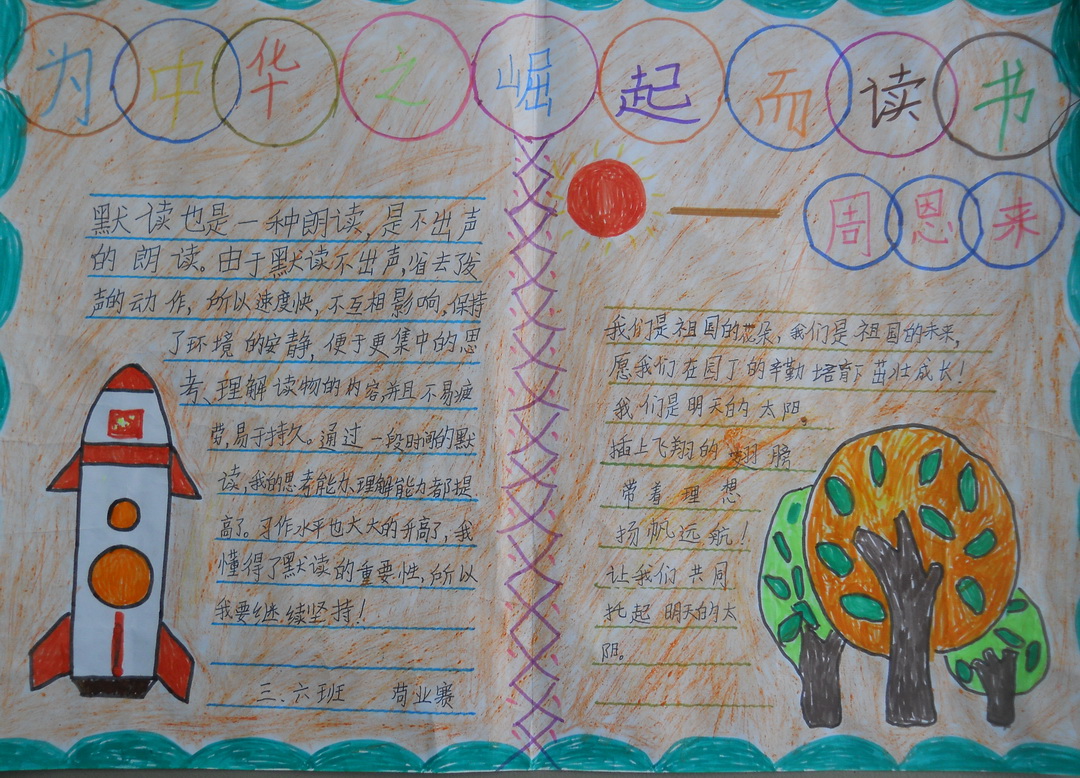 为中华之崛起而读书
周恩来
默读也是一种朗读,是不出声
的朗读。由于默读不出声,省去了发
声的动作,所以速度快,不互相影响,保持
了环境的安静,便于更集中的思
考、理解读物的内容并且不易疲
劳,易于持久。通过一段时间的默
读,我的思考能力、理解能力都提
高了。习作水平也大大的升高了,我
懂得了默读的重要性,所以
我要继续坚持!
三、六班 苟业赛
我们是祖国的花朵,我们是祖国的未来,
愿我们在园丁的辛勤培育下茁壮成长!
我们是明天的太阳。
插上飞翔的翅膀
带着理想
扬帆远航!
让我们共同
托起明天的太
阳。